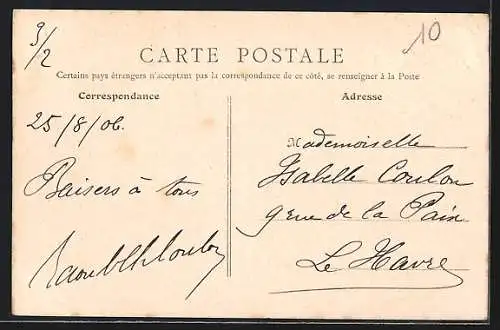 3/2
10
CARTE POSTALE
Certains pays étrangers n'acceptant pas la correspondance de ce côté, se renseigner à la Poste
Correspondance
25/8/06.
Baisers à tous
Adresse
Mademoiselle
Isabelle Coulon
9 rue de la Paix
Le Havre